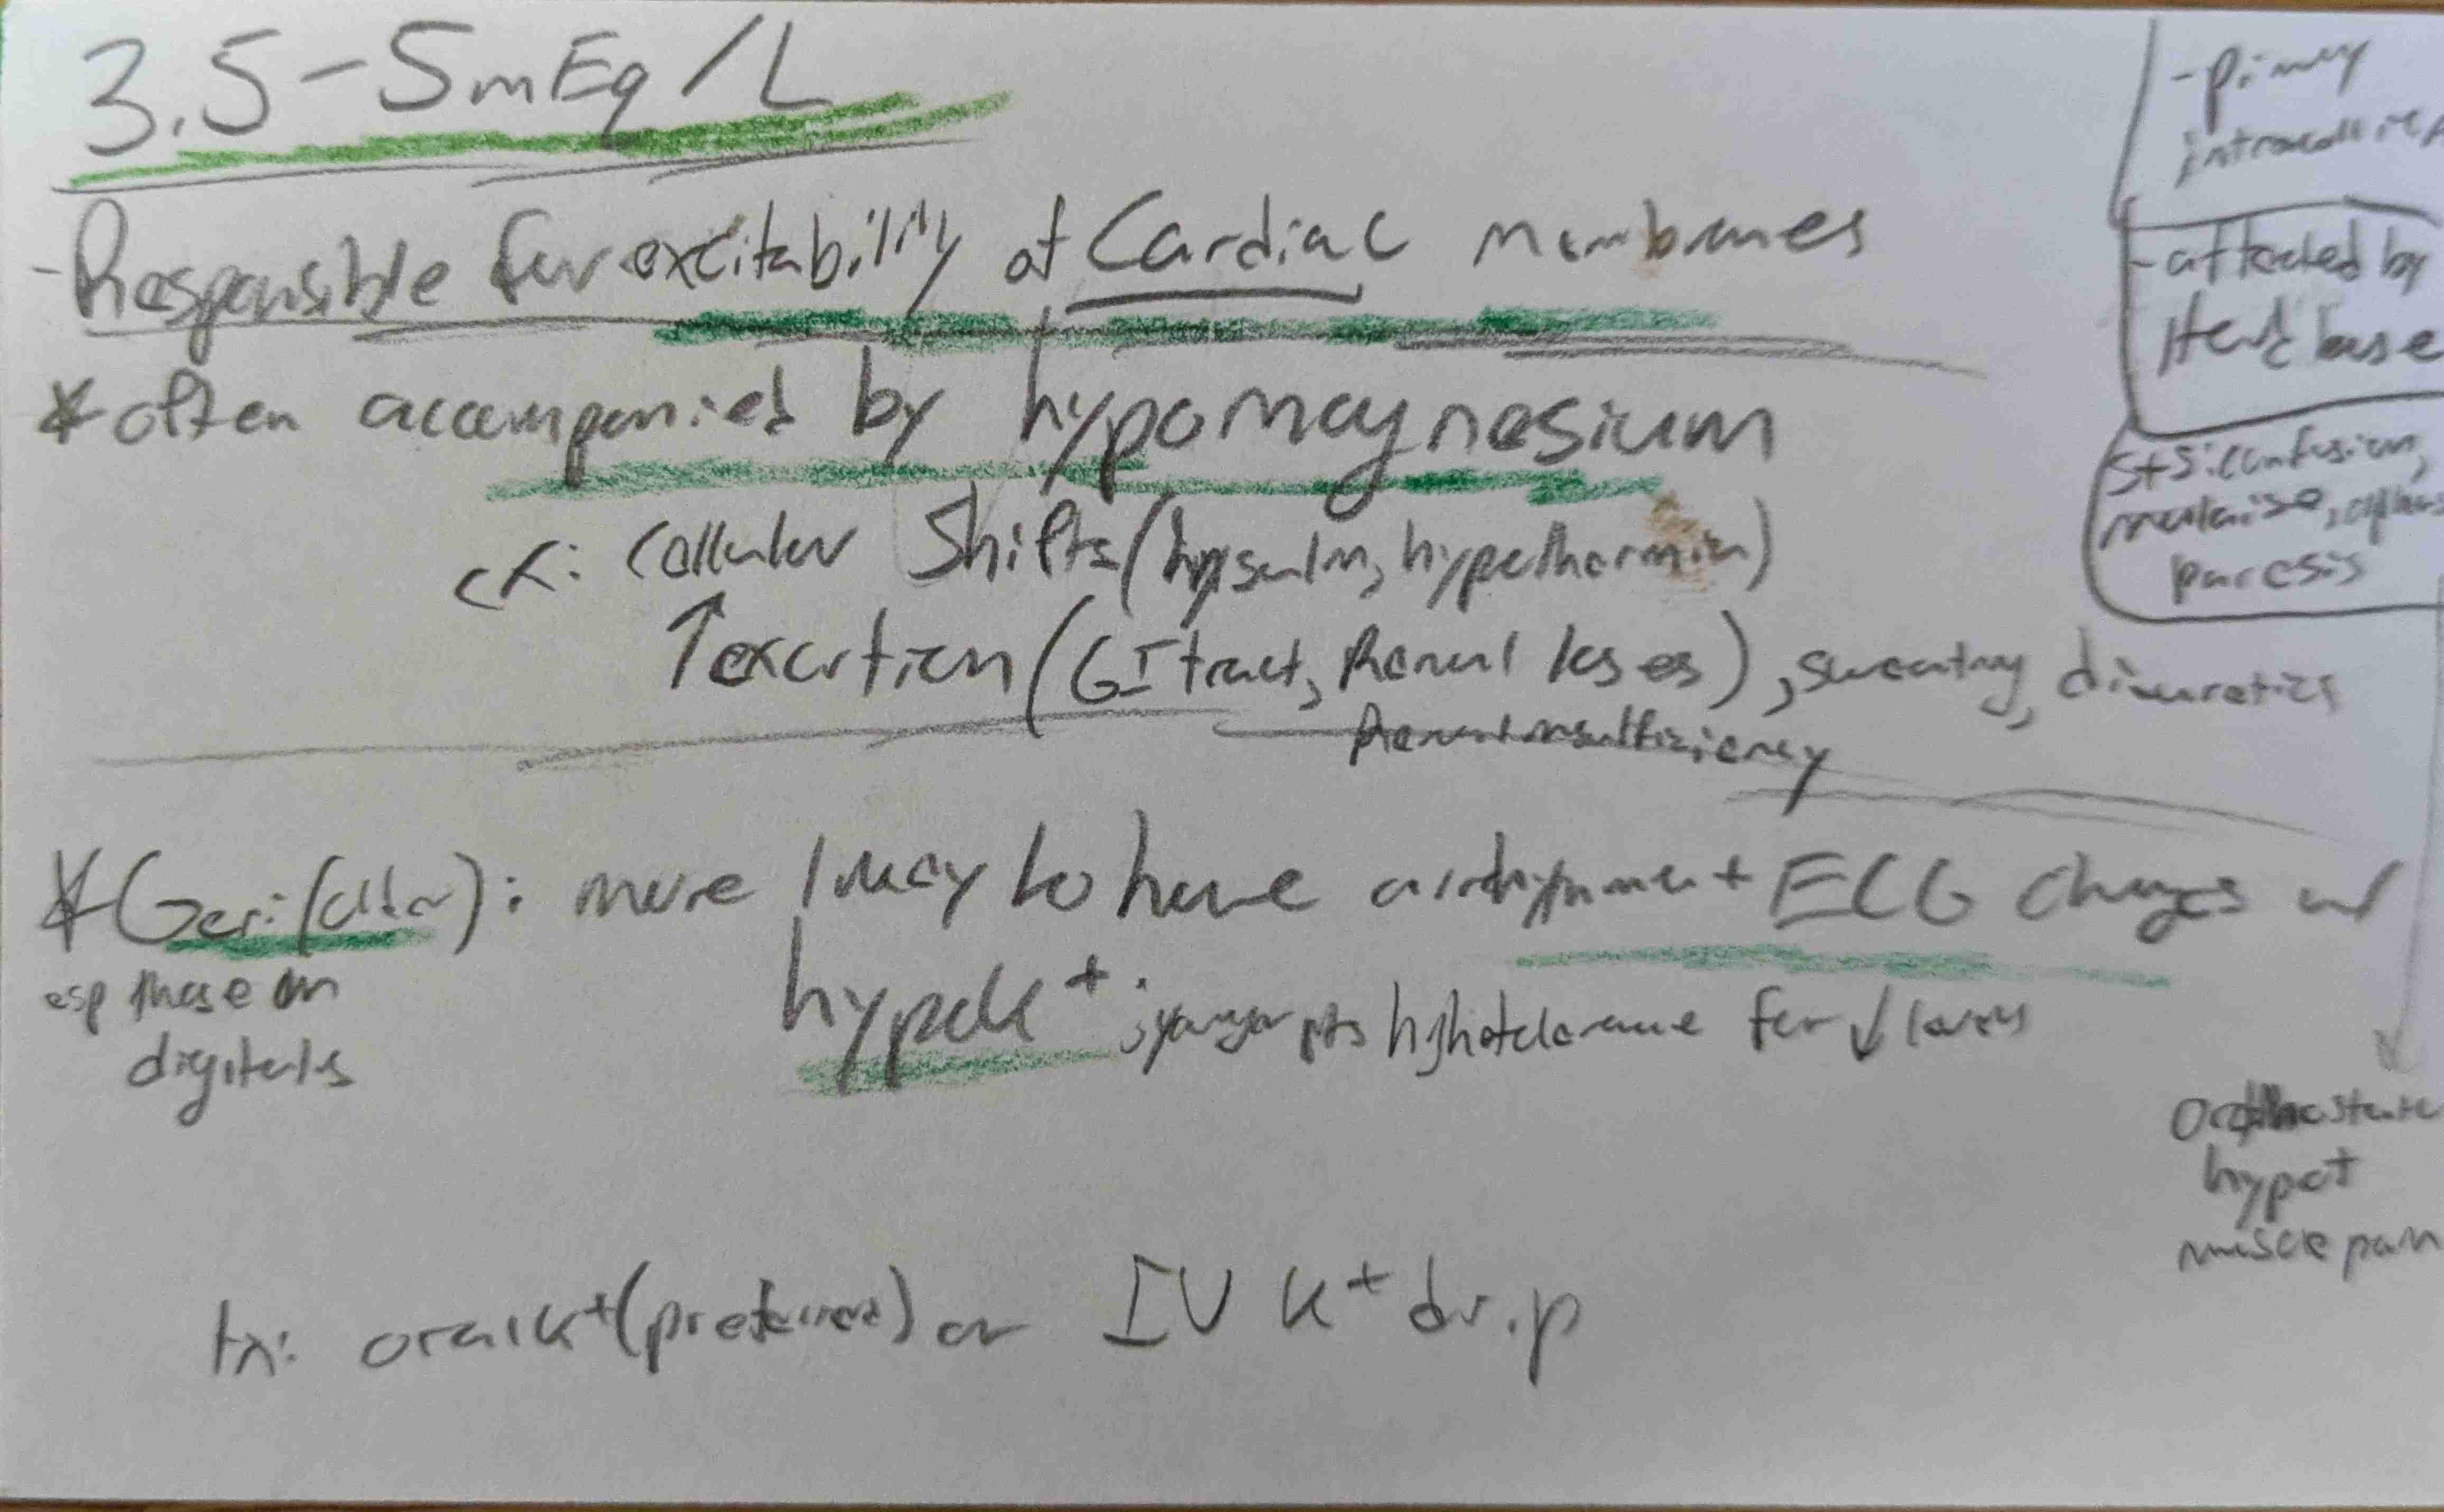 3.5-5mEq/L
-Responsible for excitability of Cardiac membranes
* often accompanied by hypomagnesium
Cellular Shifts (hypothermia)
↑ (GI tract, Renal losses), sweating, diuretics
Renal insufficiency
* Geri (older): more likely to have + ECG changes w/
esp those on
digitalis
hypoK+; younger pts high tolerance for ↓ levels
tx: oral K+ (preferred) or IV K+ drip
-affected by
S+S: confusion,
malaise,
paresis
hypot
muscle pain